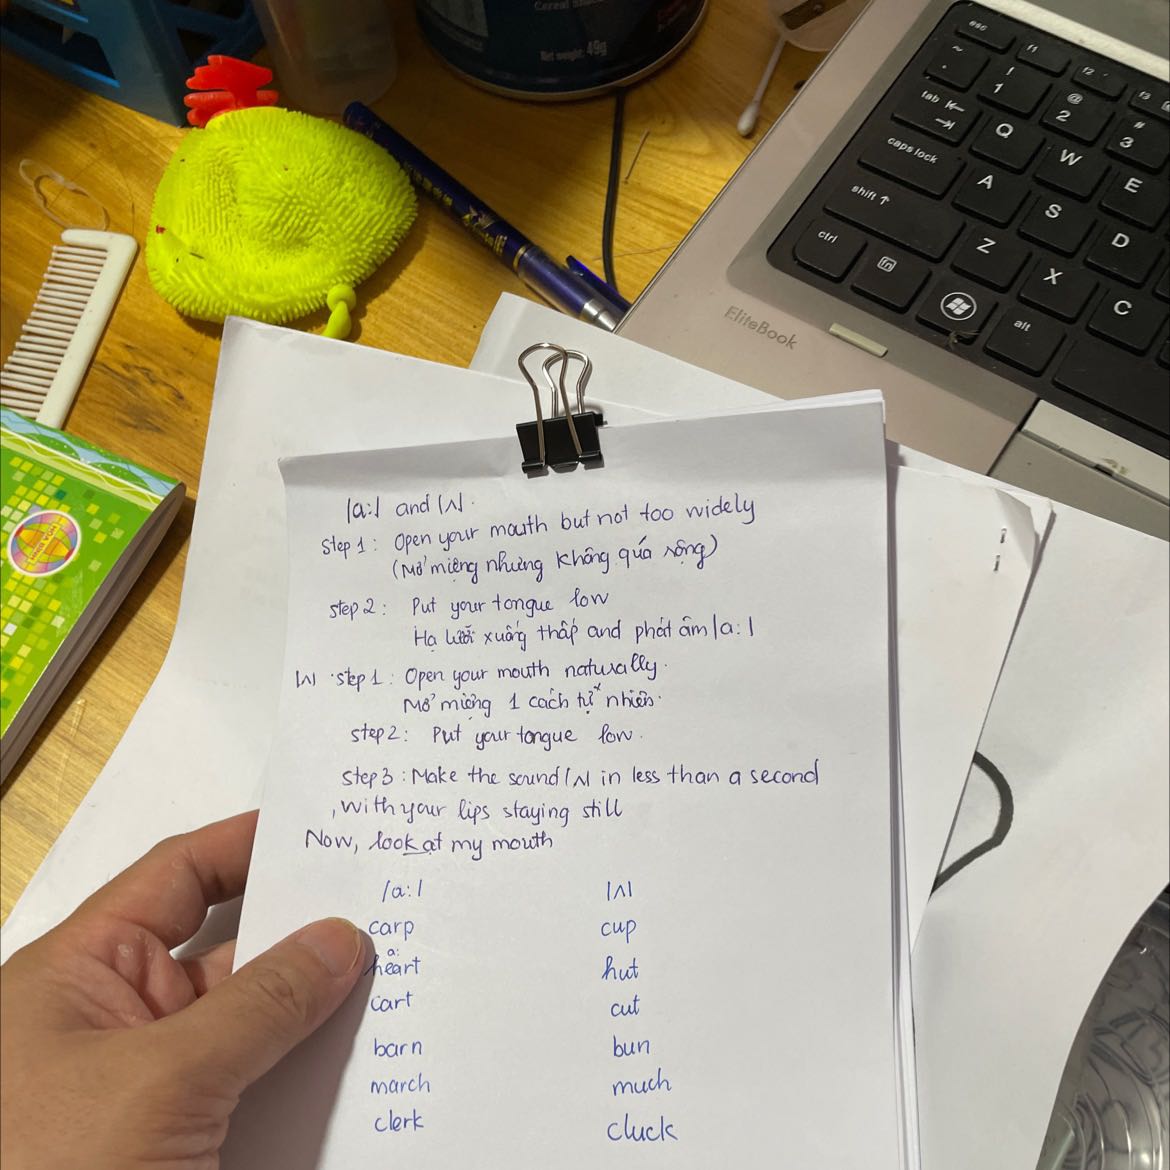 Cereal
Net weight: 49g
esc
f1
f2
f3
~
!
1
@
2
#
3
tab
Q
W
E
caps lock
A
S
D
shift
Z
X
C
ctrl
fn
alt
EliteBook
/a:/ and /ʌ/.
Step 1: Open your mouth but not too widely
(Mở miệng nhưng không quá rộng)
step 2: Put your tongue low
Hạ lưỡi xuống thấp and phát âm /a:/
/ʌ/ step 1: Open your mouth naturally.
Mở miệng 1 cách tự nhiên.
step 2: Put your tongue low.
Step 3: Make the sound /ʌ/ in less than a second
, with your lips staying still
Now, look at my mouth
/a:/ /ʌ/
carp cup
a:
heart hut
cart cut
barn bun
march much
clerk cluck